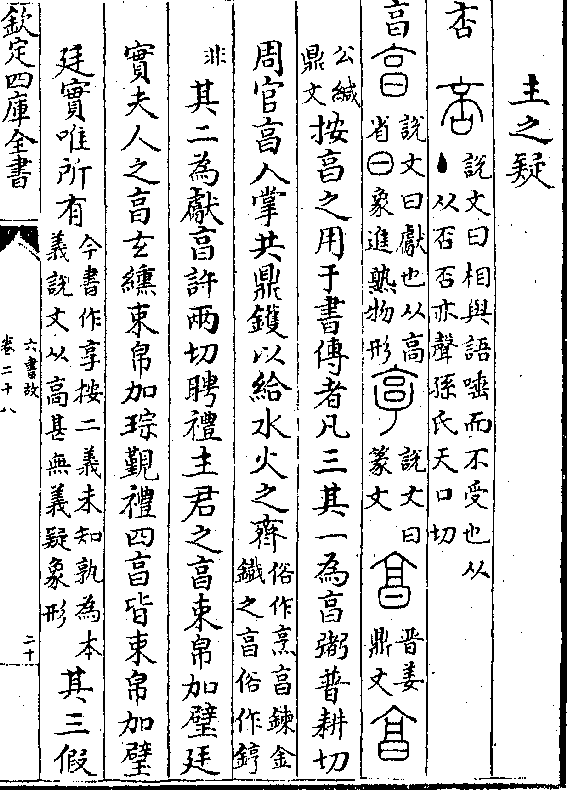 主之疑
否 𠶷 說文曰相與語唾而不受也从
丶从否否亦聲孫氏天口切
亯 說文曰獻也从高
省曰象進熟物形 說文曰
篆文 晋姜
鼎文
公緘
鼎文 按亯之用于書傳者凡三其一為亯粥普耕切
周官亯人掌共鼎鑊以給水火之齊 俗作烹亯鍊金
鐵之亯俗作錞
非 其二為獻亯許兩切聘禮主君之亯束帛加璧廷
實夫人之亯玄纁束帛加琮覲禮四亯皆束帛加璧
廷實唯所有 今書作享按二義未知孰為本
義說文从高甚無義疑象形 其三假
欽定四庫全書
六書故
卷二十八
二十